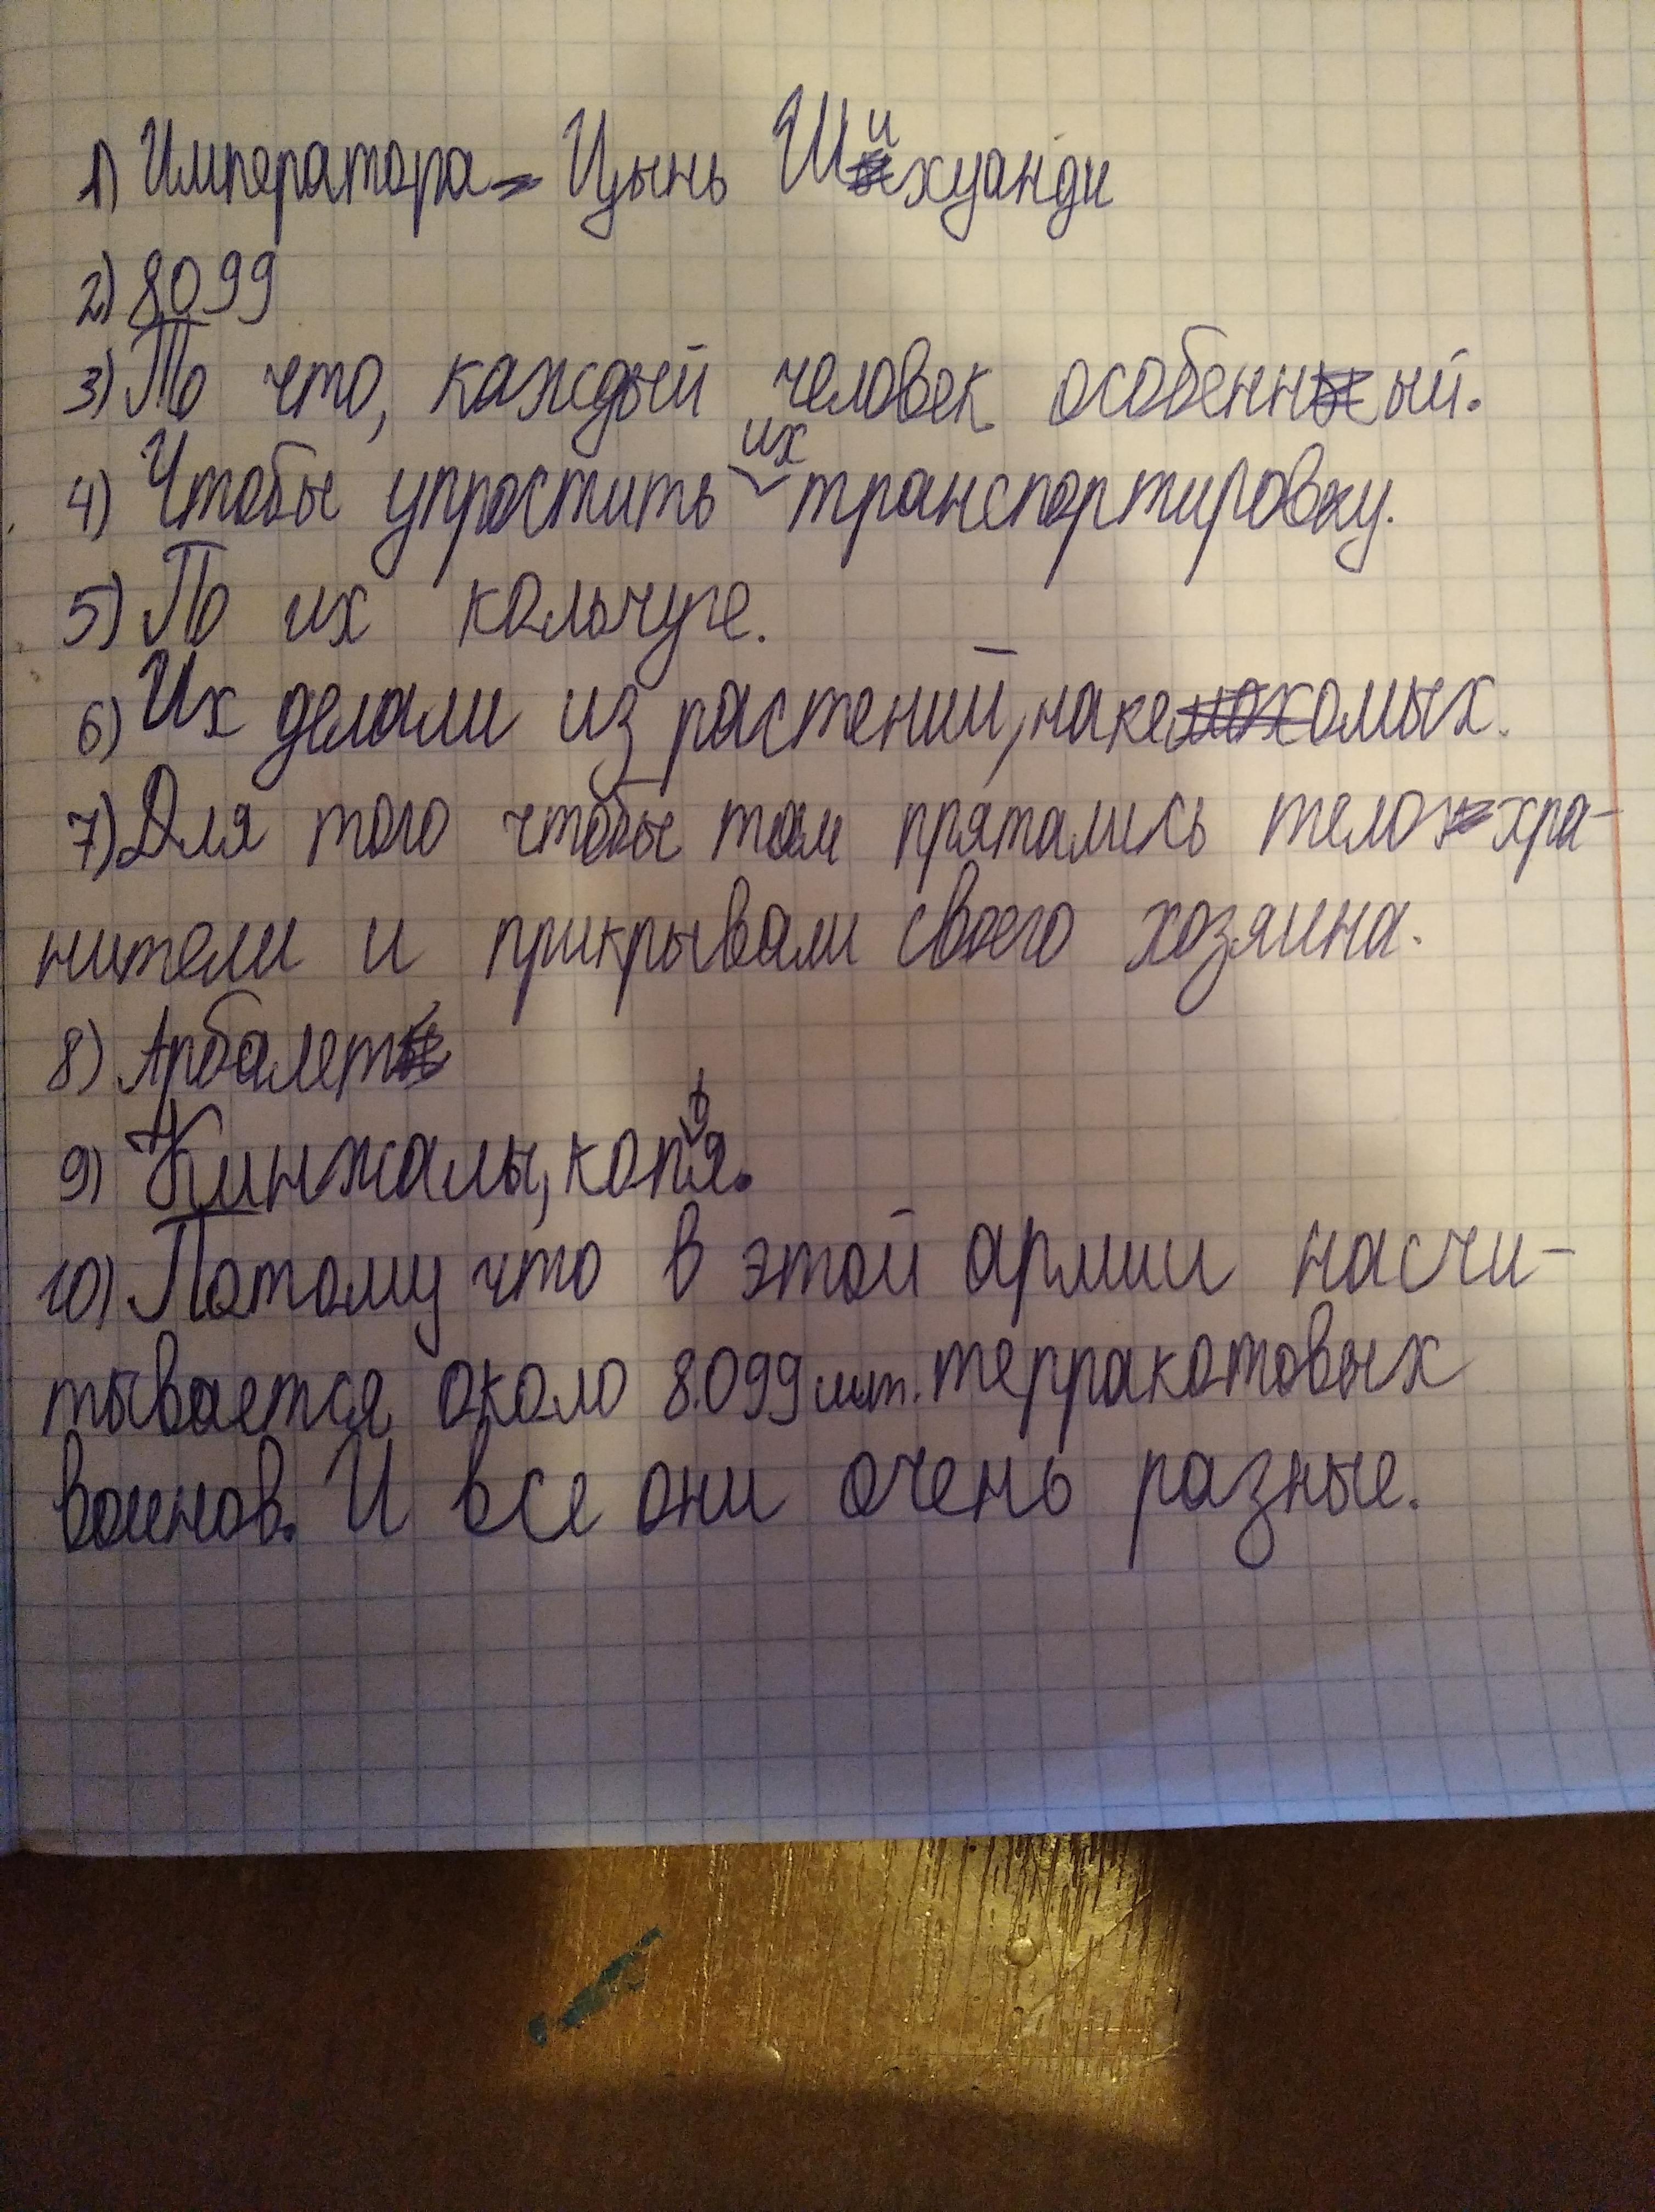 1) Императора Цынь Шихуанди
2) 8099
3) То что, каждый человек особенный.
4) Чтобы упростить их транспортировку.
5) По их кольчуге.
6) Их делали из растений, накемохомых.
7) Для того чтобы там прятались телохра-
нители и прикрывали своего хозяина.
8) Арбалет
9) Кинжалы, копья.
10) Потому что в этой армии насчи-
тывается около 8.099 шт. терракотовых
воинов. И все они очень разные.